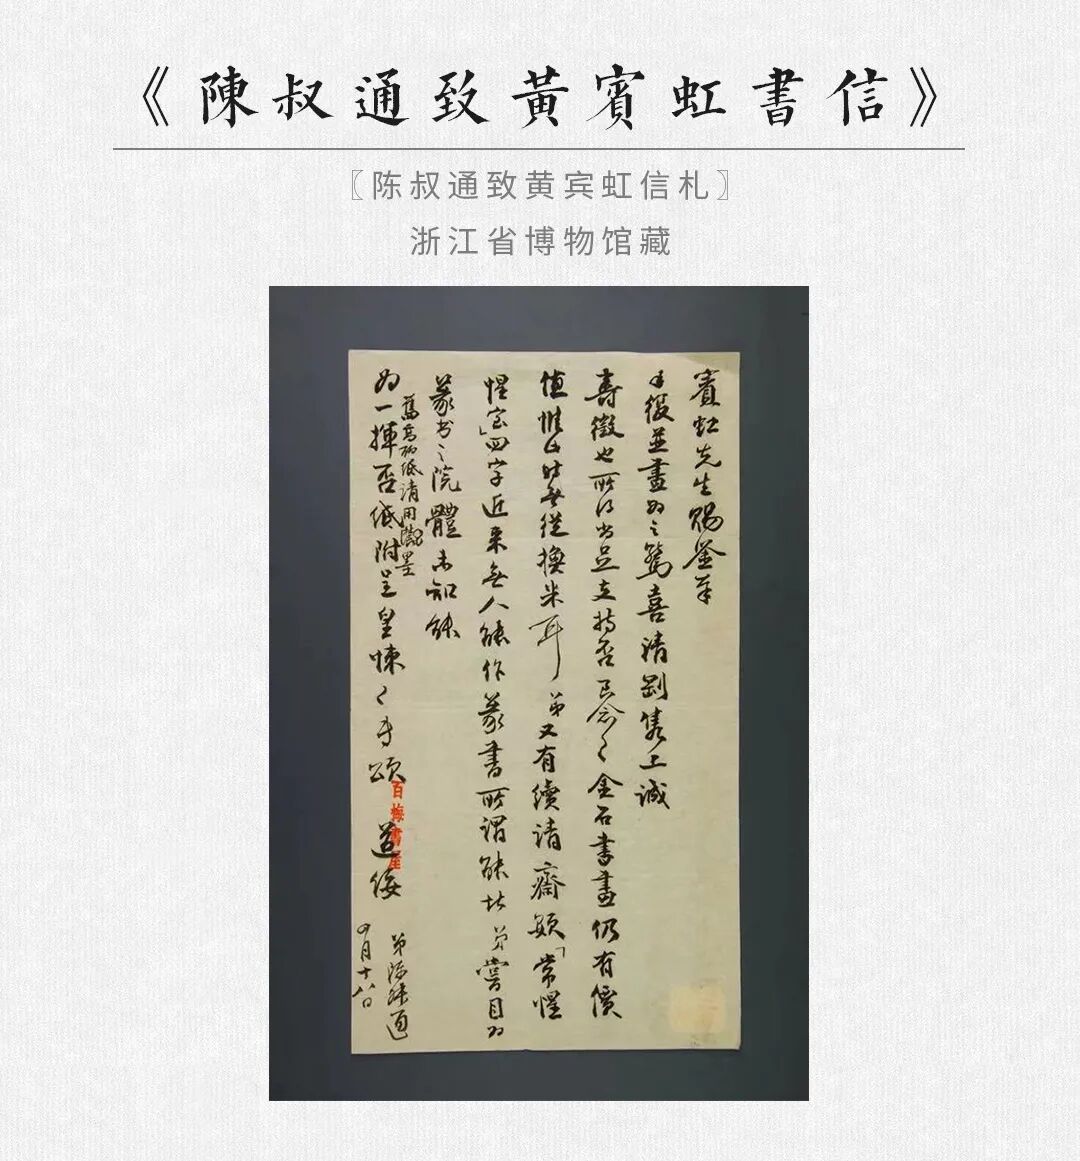 《陳叔通致黃賓虹書信》
〖陈叔通致黄宾虹信札〗
浙江省博物馆藏
賓虹先生賜鑒奉
手復並畫為之驚喜清剛雋上誠
壽徵也所得尚足支持否念念金石書畫仍有價
值惟此時無從換米耳弟又有續請齋額「常惺
惺室」四字近來無人能作篆書所謂能者弟嘗目為
篆書之院體未知能
為一揮否紙附呈皇悚皇悚專頌道綏
舊高麗紙請用濃墨
弟陳叔通
四月十八日
百梅書屋